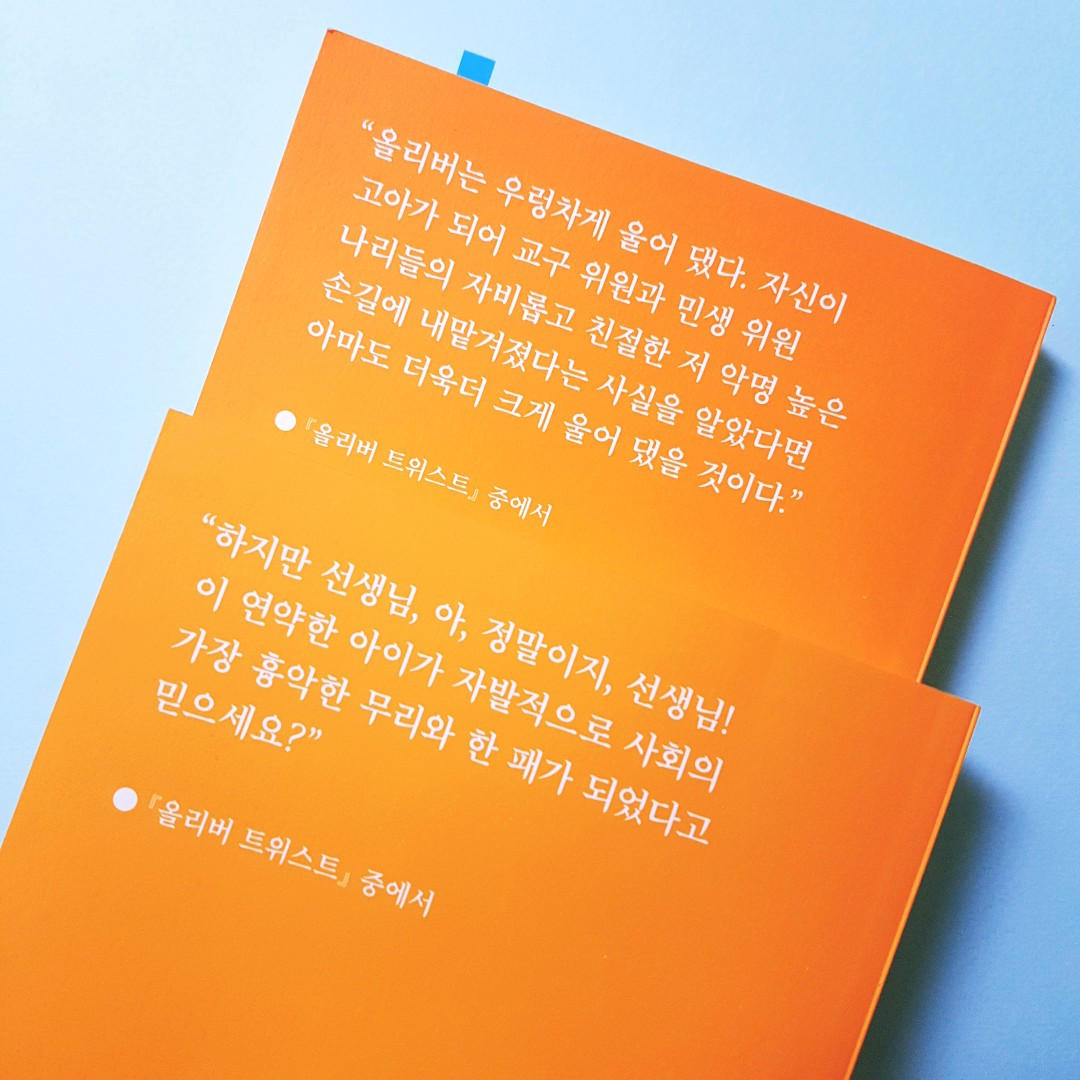 “올리버는 우렁차게 울어 댔다. 자신이
고아가 되어 교구 위원과 민생 위원
나리들의 자비롭고 친절한 저 악명 높은
손길에 내맡겨졌다는 사실을 알았다면
아마도 더욱더 크게 울어 댔을 것이다.”
●『올리버 트위스트』 중에서
“하지만 선생님, 아, 정말이지, 선생님!
이 연약한 아이가 자발적으로 사회의
가장 흉악한 무리와 한 패가 되었다고
믿으세요?”
●『올리버 트위스트』 중에서